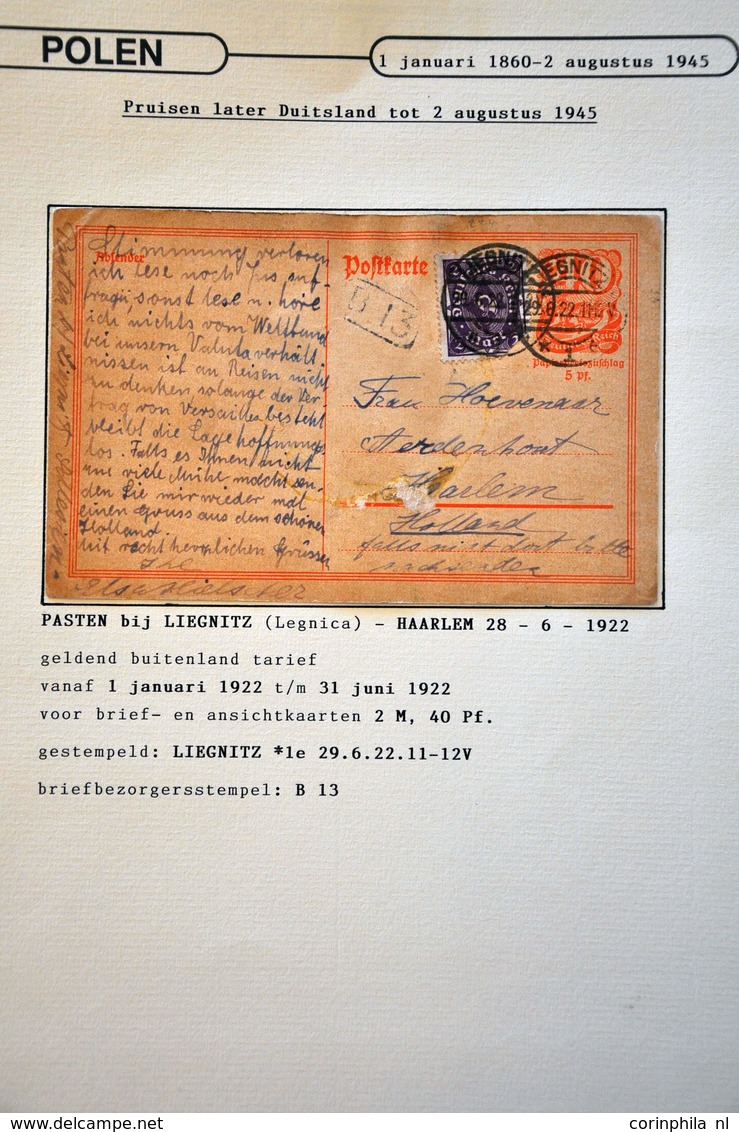 POLEN
1 januari 1860-2 augustus 1945
Pruisen later Duitsland tot 2 augustus 1945
Absender
Stimmung verloren
ich lese noch Jus auf-
fragen, sonst lese u. höre
ich nichts vom Weltbund
bei unsern Valuta verhält.
nissen ist an Reisen nicht
zu denken, solange der Ver
trag von Versailles besteht
bleibt die Lage hoffnungs
los. Falls es Ihnen nicht
zu viele Mühe macht sen
den Sie mir wieder mal
einen Gruss aus dem schönen
Holland.
Mit recht herzlichen Grüssen
Ihre
Postkarte
B 13
LIEGNITZ
29.6.22.11-12V
Deutsches Reich
Papier
zuschlag
5 Pf.
Frau Hoevenaar
Aerdenhout
Haarlem
Holland
falls nicht dort bitte
nachsenden
PASTEN bij LIEGNITZ (Legnica) - HAARLEM 28 - 6 - 1922
geldend buitenland tarief
vanaf 1 januari 1922 t/m 31 juni 1922
voor brief- en ansichtkaarten 2 M, 40 Pf.
gestempeld: LIEGNITZ *1e 29.6.22.11-12V
briefbezorgersstempel: B 13
delcampe.net
corinphila nl